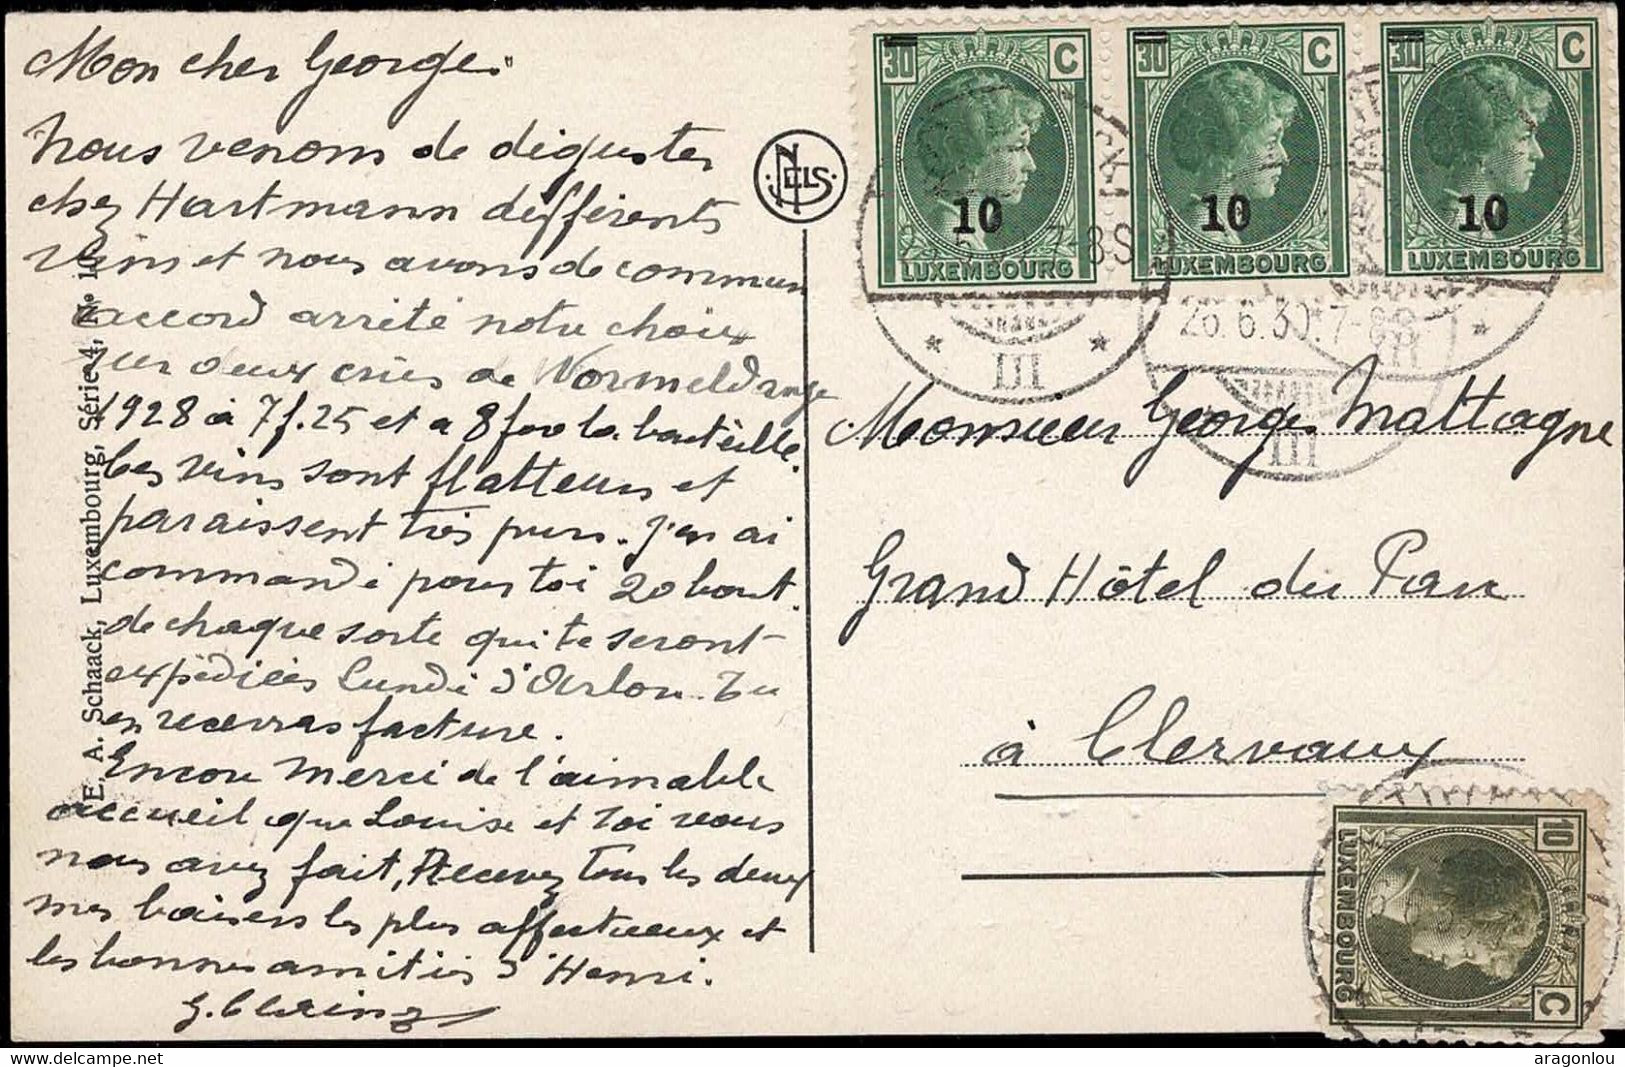 Mon cher Georges
Nous venons de déguster
chez Hartmann différents
vins et nous avons de commun
accord arrêté notre choix
sur deux crûs de Wormeldange
1928 à 7f.25 et à 8f la bouteille.
Les vins sont flatteurs et
paraissent très purs. J'en ai
commandé pour toi 20 bout.
de chaque sorte qui te seront
expédiées Lundi d'Arlon. Tu
en recevras facture.
Encore merci de l'aimable
accueil que Louise et toi vous
nous avez fait, Recevez tous les deux
mes baisers les plus affectueux et
les bonnes amitiés d'Henri.
E. A. Schaack, Luxembourg, Série 4, No
NELS
30 C
10
LUXEMBOURG
30 C
10
LUXEMBOURG
30 C
10
LUXEMBOURG
7-8S
III
26.6.30.7-8S
III
III
Monsieur Georges Mattagne
Grand Hôtel du Parc
à Clervaux
10 C
LUXEMBOURG
aragonlou